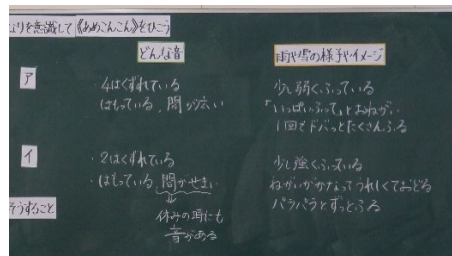 なりを意識して《あめこんこん》をひこう
どんな音
雨や雪の様子やイメージ
ア
・4はくずれている
はもっている、間が広い
少し弱くふっている
「いっぱいふって」とおねがい
1回でドバっとたくさんふる
イ
・2はくずれている
・はもっている、間がせまい
休みの間にも
音がある
少し強くふっている
ねがいがかなってうれしくておどる
パラパラとずっとふる
そうすること